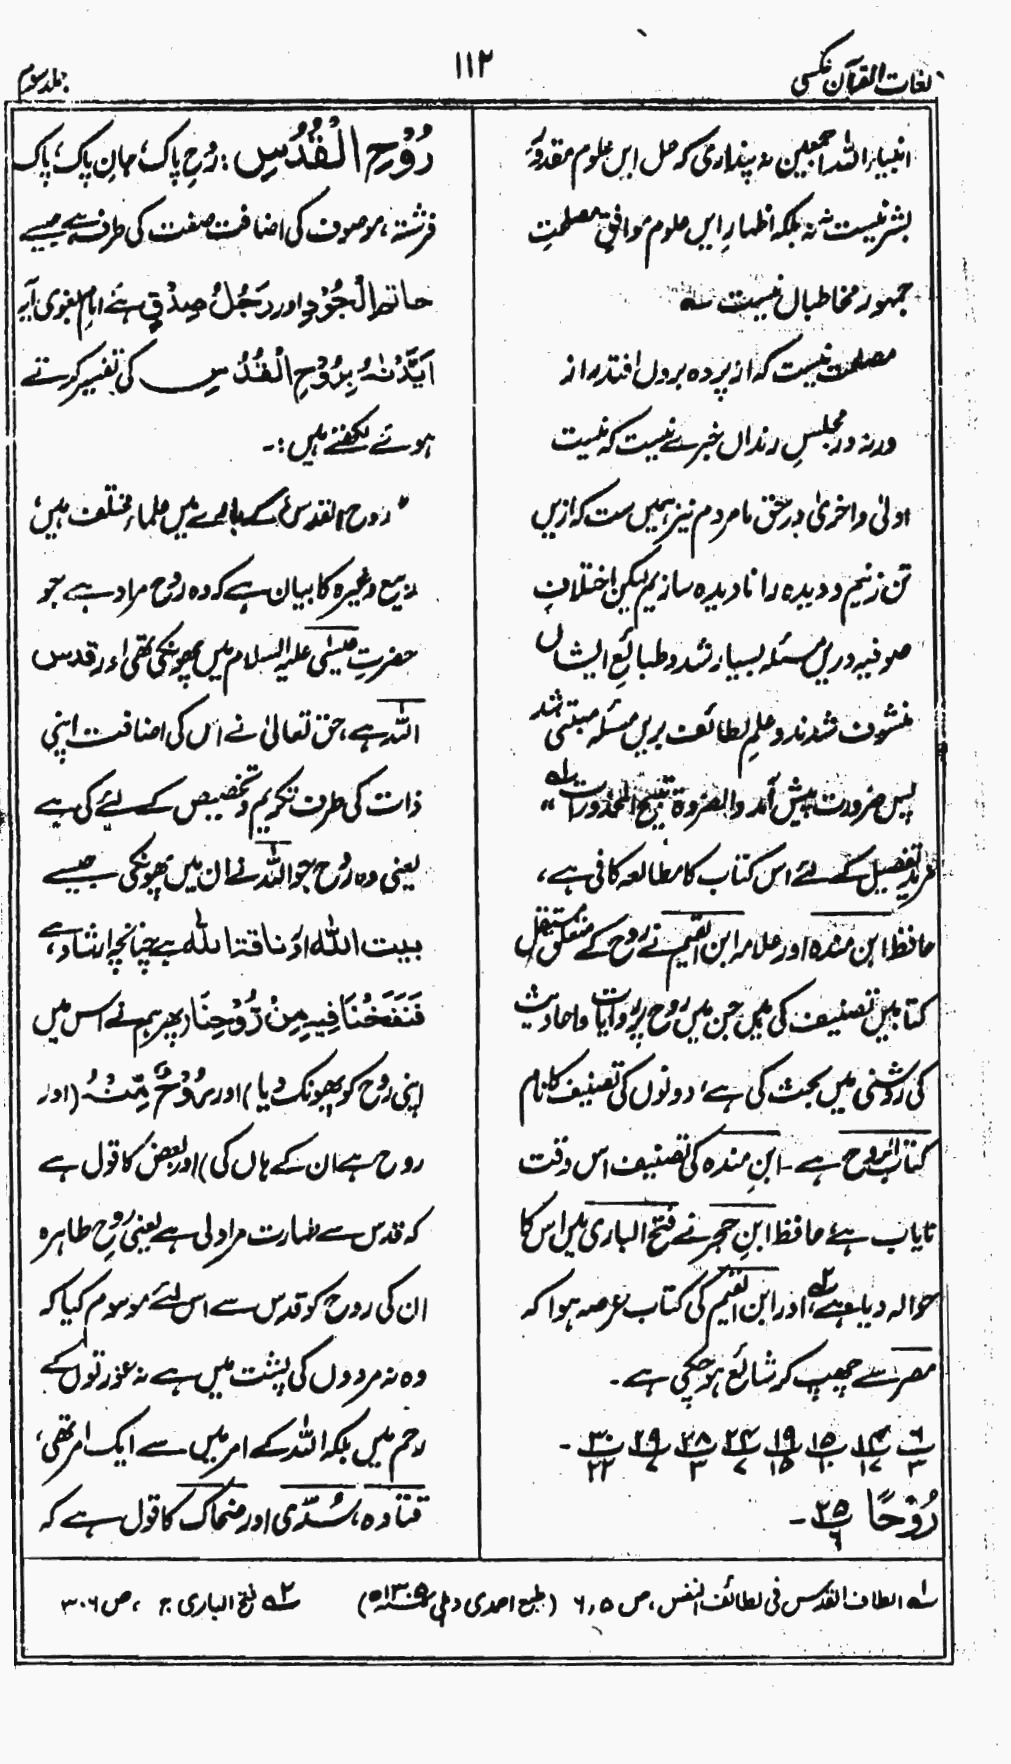 لغات القرآن عکسی
۱۱۲
جلد سوم
انبیاء اللہ اجمعین نہ پنداری کہ حل ایں علوم مقدورِ
بشر نیست نہ نہ بلکہ اظہارِ ایں علوم موافقِ مصلحتِ
جمہور مخاطبال نیست ــہ
مصلحت نیست کہ از پردہ بروں افتد راز
ورنہ در مجلسِ رنداں خبرے نیست کہ نیست
اولیٰ و اخریٰ در حق ما مردم نیز ہمیں ست کہ ازیں
تن زنیم و دیدہ را نادیدہ سازیم لیکن اختلافِ
صوفیہ دریں مسئلہ بسیار شد و طبائع ایشاں
متشوف شدند و علم لطائف بریں مسئلہ مبتنی شد
پس ضرورت پیش آمد والضرورۃ تبیح المحذورات لہ"
مزید تفصیل کے لئے اس کتاب کا مطالعہ کافی ہے،
حافظ ابن مندہ اور علامہ ابن القیم نے روح کے متعلق مستقل
کتابیں تصنیف کی ہیں جن میں روح پر روایات و احادیث
کی روشنی میں بحث کی ہے، دونوں کی تصنیف کا نام
کتاب الروح ہے - ابنِ مندہ کی تصنیف اس وقت
نایاب ہے، حافظ ابنِ حجر نے فتح الباری میں اس کا
حوالہ دیا ہے ۲ہ، اور ابن القیم کی کتاب عرصہ ہوا کہ
مصر سے چھپ کر شائع ہو چکی ہے -
۶/۳ ۱۴/۱۷ ۱۵/۱۰ ۱۹/۱۵ ۲۴/۷ ۲۸/۳ ۲۹/۷ ۳۰/۲۲ -
رُوْحًا ۲۵/۶ -
رُوْحِ الْقُدُسِ : روحِ پاک، جانِ پاک، پاک
فرشتہ، موصوف کی اضافت صفت کی طرف ہے جیسے
حاتم الْجُوْدِ اور رَجُلُ صِدْقٍ ہے، امام بغوی آیہ
اَیَّدْنٰہُ بِرُوْحِ الْقُدُسِ کی تفسیر کرتے
ہوئے لکھتے ہیں :-
" روح القدس کے بارے میں علماء مختلف ہیں،
ربیع وغیرہ کا بیان ہے کہ وہ روح مراد ہے جو
حضرتِ عیسٰی علیہ السلام میں پھونکی تھی اور قدس
اللہ ہے، حق تعالیٰ نے اس کی اضافت اپنی
ذات کی طرف تکریم و تخصیص کے لئے کی ہے
یعنی وہ روح جو اللہ نے ان میں پھونکی جیسے
بیت اللہ اور ناقۃ اللہ ہے چنانچہ ارشاد ہے،
فَنَفَخْنَا فِیْہِ مِنْ رُّوْحِنَا (پھر ہم نے اس میں
اپنی روح کو پھونک دیا) اور رُوْحٌ مِّنْہُ (اور
روح ہے ان کے ہاں کی) اور بعض کا قول ہے
کہ قدس سے طہارت مراد لی ہے یعنی روحِ طاہرہ
ان کی روح کو قدس سے اس لئے موسوم کیا کہ
وہ نہ مردوں کی پشت میں ہے نہ عورتوں کے
رحم میں بلکہ اللہ کے امر میں سے ایک امر تھی،
قتادہ، سُدّی اور ضحاک کا قول ہے کہ
۱ہ الطاف القدس فی لطائف النفس، ص ۵،۶ (طبع احمدی دہلی ۱۳۰۹ھ) ۲ہ فتح الباری ج ، ص ۳۰۶